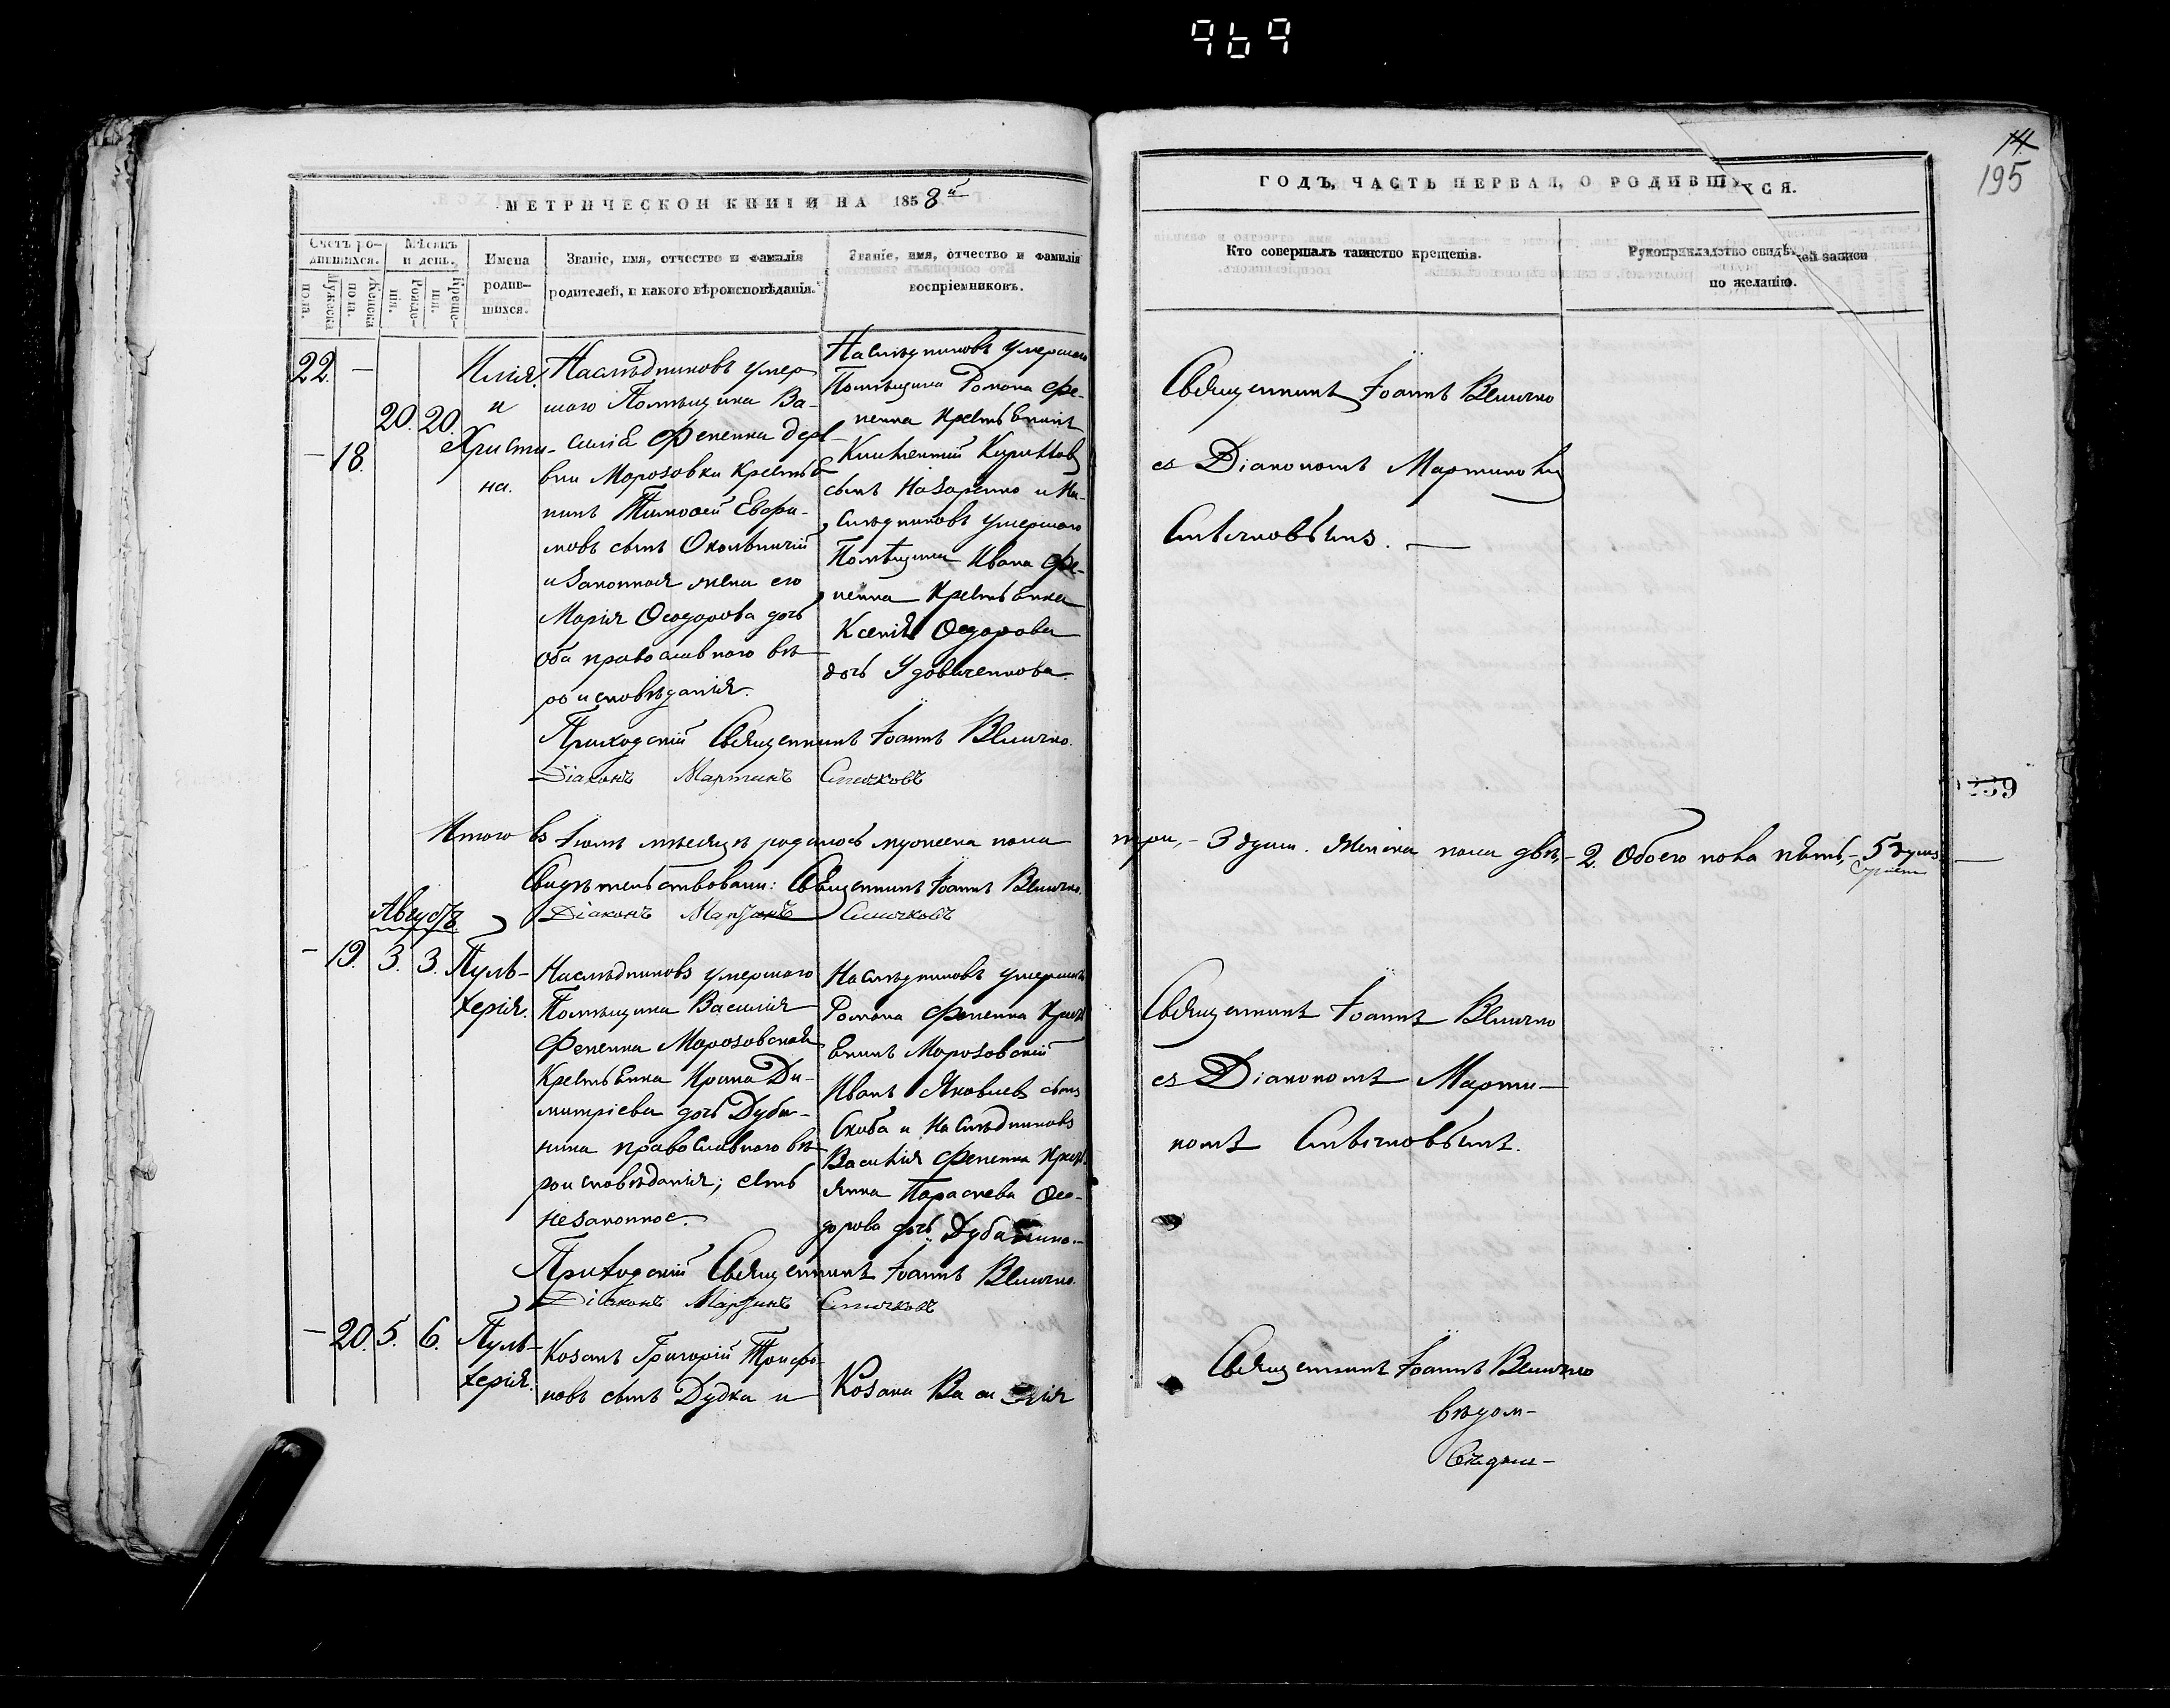 969
14
195
МЕТРИЧЕСКОЙ КНИГИ НА 1858й
ГОДЪ, ЧАСТЬ ПЕРВАЯ, О РОДИВШИХСЯ.
Счетъ ро-
дившихся.
Мужеска
пола.
Женска
пола.
Мѣсяцъ
и день.
Рожде-
нія.
Креще-
нія.
Имена
родив-
шихся.
Званіе, имя, отчество и фамилія
родителей, и какого вѣроисповѣданія.
Званіе, имя, отчество и фамилія
воспріемниковъ.
Кто совершалъ таинство крещенія.
Рукоприкладство свидѣ
лей записи
по желанію.
22. —
— 18.
20. 20.
Илія
и
Христи-
на.
Наслѣдниковъ умер
шаго Помѣщика Ва-
силія Фененка дере
вни Морозовки Крестья
нинъ Тимоѳей
сынъ
и законная жена его
Марія Ѳеодорова дочь
оба православнаго вѣ
роисповѣданія.
Наслѣдниковъ умершаго
Помѣщика Романа Фе-
ненка Крестьянинъ
сынъ Назаренко и На-
слѣдниковъ умершаго
Помѣщика Ивана Фе-
ненка Крестьянка
Ксенія Ѳедорова
дочь Удовиченкова.
Священникъ Іоаннъ Величко
съ Діакономъ Мартиномъ
Приходскій Священникъ Іоаннъ Величко.
Діаконъ Мартинъ
Итого въ Іюлѣ мѣсяцѣ родилось мужеска пола
три, – 3 души. Женска пола двѣ, – 2. Обоего пола пять, – 5 душъ
Свидѣтельствовали: Священникъ Іоаннъ Величко.
Діаконъ Мартинъ
Августъ
— 19. 3. 3.
Пуль-
херія.
Наслѣдниковъ умершаго
Помѣщика Василія
Фененка Морозовская
Крестьянка Ди-
митріева дочь Дуби-
нина православнаго вѣ
роисповѣданія;
незаконное.
Наслѣдниковъ умершаго
Романа Фененка Крест
янинъ Морозовскій
Иванъ Яковлевъ сынъ
Скоба и Наслѣдниковъ
Василія Фененка Крест
янка Параскева Ѳео-
дорова дочь
Священникъ Іоаннъ Величко
съ Діакономъ Марти-
номъ
Приходскій Священникъ Іоаннъ Величко.
Діаконъ Мартинъ
— 20. 5. 6.
Пуль-
херія.
Козакъ Григорій Трифо
новъ сынъ Дудка и
Козака Василія
Священникъ Іоаннъ Величко